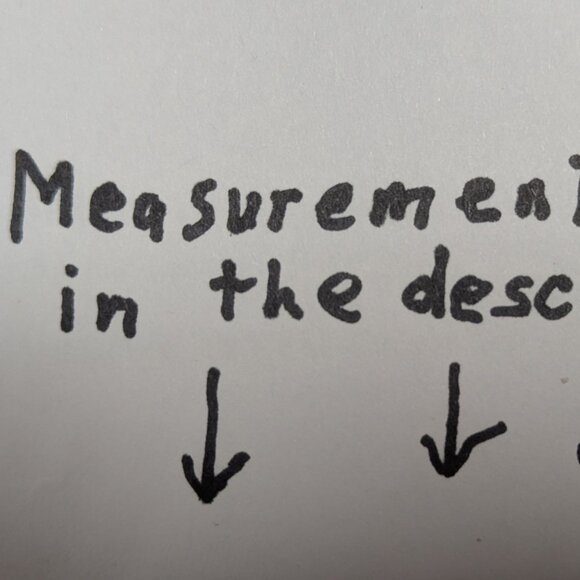 Measurement
in the desc
↓ ↓